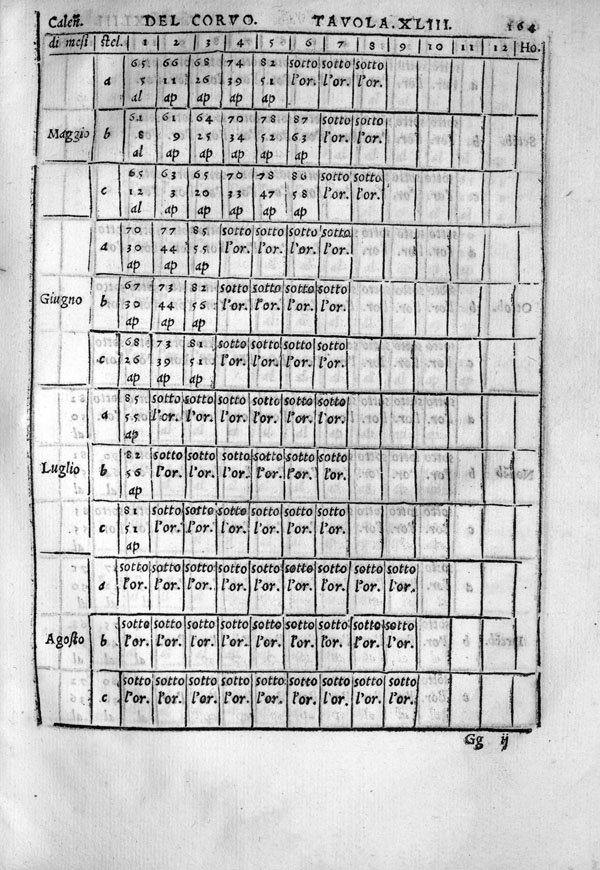 Caleñ. DEL CORVO. TAVOLA.XLIII. 164
di mesi stel. 1 2 3 4 5 6 7 8 9 10 11 12 Ho.
65 66 68 74 82 sotto sotto sotto
a 5 11 26 39 51 l'or. l'or. l'or.
al ap ap ap ap
61 61 64 70 78 87 sotto sotto
Maggio b 8 9 25 34 52 63 l'or. l'or.
al ap ap ap ap ap
65 63 65 70 78 86 sotto sotto
c 12 3 20 33 47 58 l'or. l'or.
al ap ap ap ap ap
70 77 85 sotto sotto sotto sotto
a 30 44 55 l'or. l'or. l'or. l'or.
ap ap ap
67 73 82 sotto sotto sotto sotto
Giugno b 30 44 56 l'or. l'or. l'or. l'or.
ap ap ap
68 73 81 sotto sotto sotto sotto
c 26 39 51 l'or. l'or. l'or. l'or.
ap ap ap
85 sotto sotto sotto sotto sotto sotto
a 55 l'or. l'or. l'or. l'or. l'or. l'or.
ap
82 sotto sotto sotto sotto sotto sotto
Luglio b 56 l'or. l'or. l'or. l'or. l'or. l'or.
ap
81 sotto sotto sotto sotto sotto sotto
c 51 l'or. l'or. l'or. l'or. l'or. l'or.
ap
sotto sotto sotto sotto sotto sotto sotto sotto
a l'or. l'or. l'or. l'or. l'or. l'or. l'or. l'or.
sotto sotto sotto sotto sotto sotto sotto sotto
Agosto b l'or. l'or. l'or. l'or. l'or. l'or. l'or. l'or.
sotto sotto sotto sotto sotto sotto sotto sotto
c l'or. l'or. l'or. l'or. l'or. l'or. l'or. l'or.
Gg ij